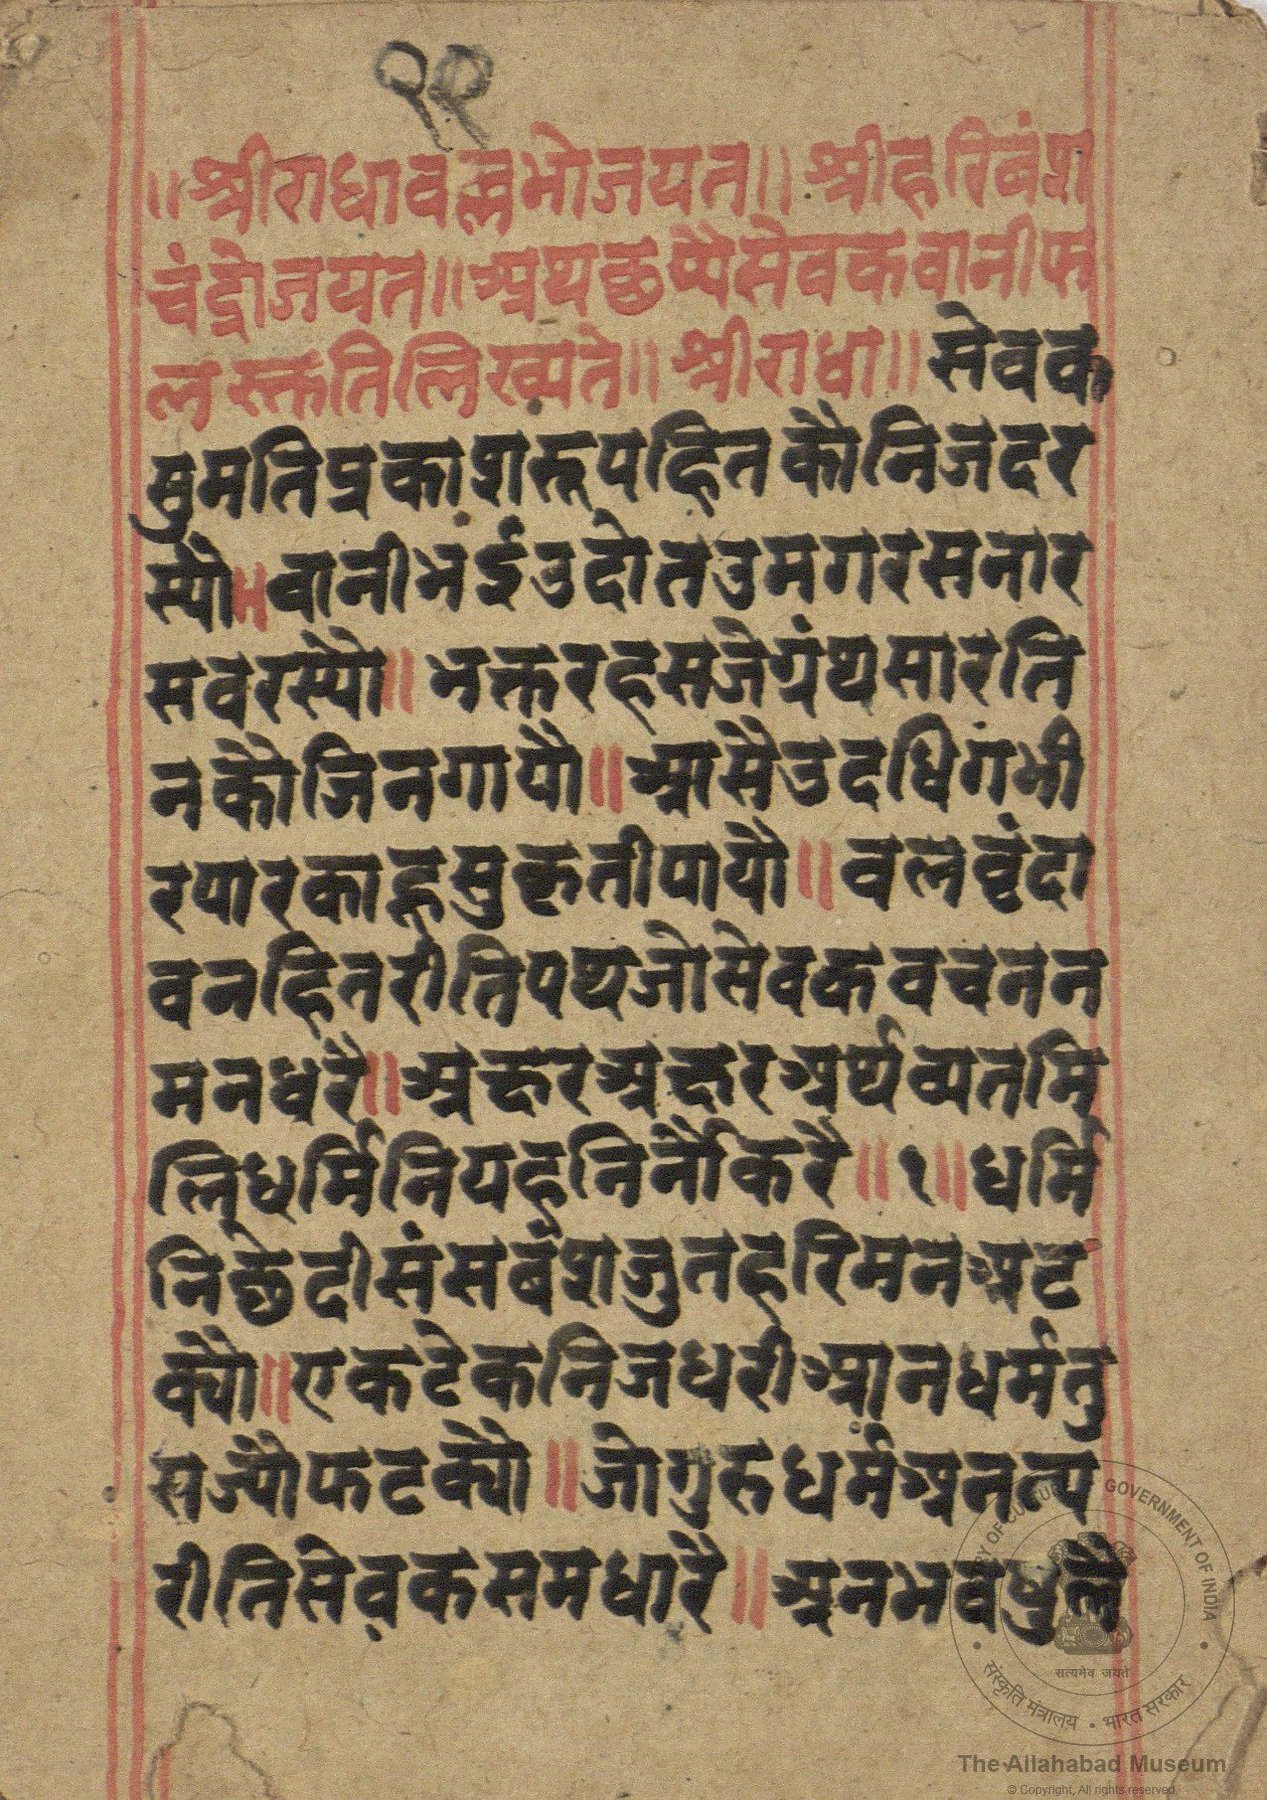 २१
॥श्रीराधावल्लभोजयत॥श्रीहरिबंश
चंद्रोजयत॥अथछप्पैसेवकवानीफ
लस्क्ततिलिख्यते॥श्रीराधा॥सेवक
सुमतिप्रकाशरूपहितकौनिजदर
स्यौ॥वानीभईउदोतउमगरसनार
सवरस्यौ॥भक्तरहसजेग्रंथसारति
नकौजिनगायौ॥असैउदधिगंभी
रपारकाहूसुकृतीपायौ॥वलवृंदा
वनहितरीतिपथजोसेवकवचनन
मनधरै॥अक्षरअक्षरअर्थव्यतमि
लिधर्मिनियहनिर्नौकरै॥१॥धर्मि
निछेदीसंसबंशजुतहरिमनअट
क्यौ॥एकटेकनिजधरीआनधर्मतु
सज्यौफटक्यौ॥जोगुरुधर्मअनत्य
रीतिसेवकसमधारै॥अनभवषुलै
MINISTRY OF CULTURE GOVERNMENT OF INDIA
सत्यमेव जयते
संस्कृति मंत्रालय • भारत सरकार
The Allahabad Museum
© Copyright, All rights reserved.